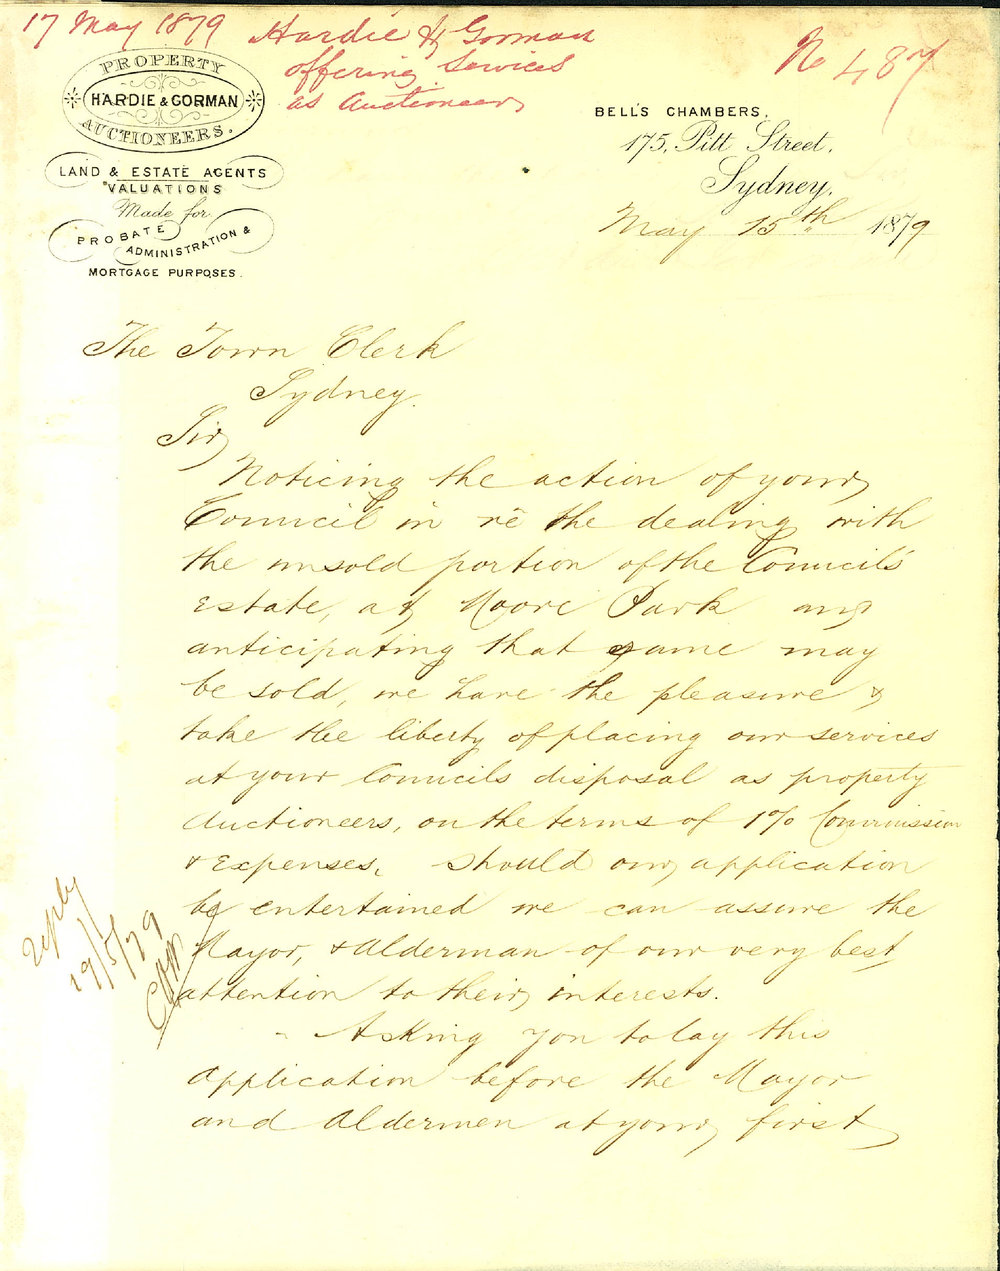 17 May 1879 Hardie & Gorman
offering Services
as Auctioneers
No 487
PROPERTY
HARDIE & GORMAN
AUCTIONEERS.
LAND & ESTATE AGENTS
VALUATIONS
Made for
PROBATE
ADMINISTRATION &
MORTGAGE PURPOSES.
BELL'S CHAMBERS,
175, Pitt Street,
Sydney,
May 15th 1879
The Town Clerk
Sydney.
Sir,
Noticing the action of your
Council in re the dealing with
the unsold portion of the Council's
Estate, at Moore Park and
anticipating that same may
be sold, we have the pleasure &
take the liberty of placing our services
at your Councils disposal as property
Auctioneers, on the terms of 1% Commission
& Expenses. Should our application
be entertained we can assure the
Mayor, & Alderman of our very best
attention to their interests.
Asking you to lay this
application before the Mayor
and Aldermen at your first
reply
19/5/79